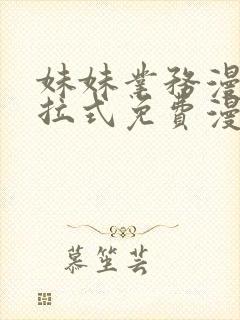 妹妹業務漫
拉式免費漫
慕笙芸